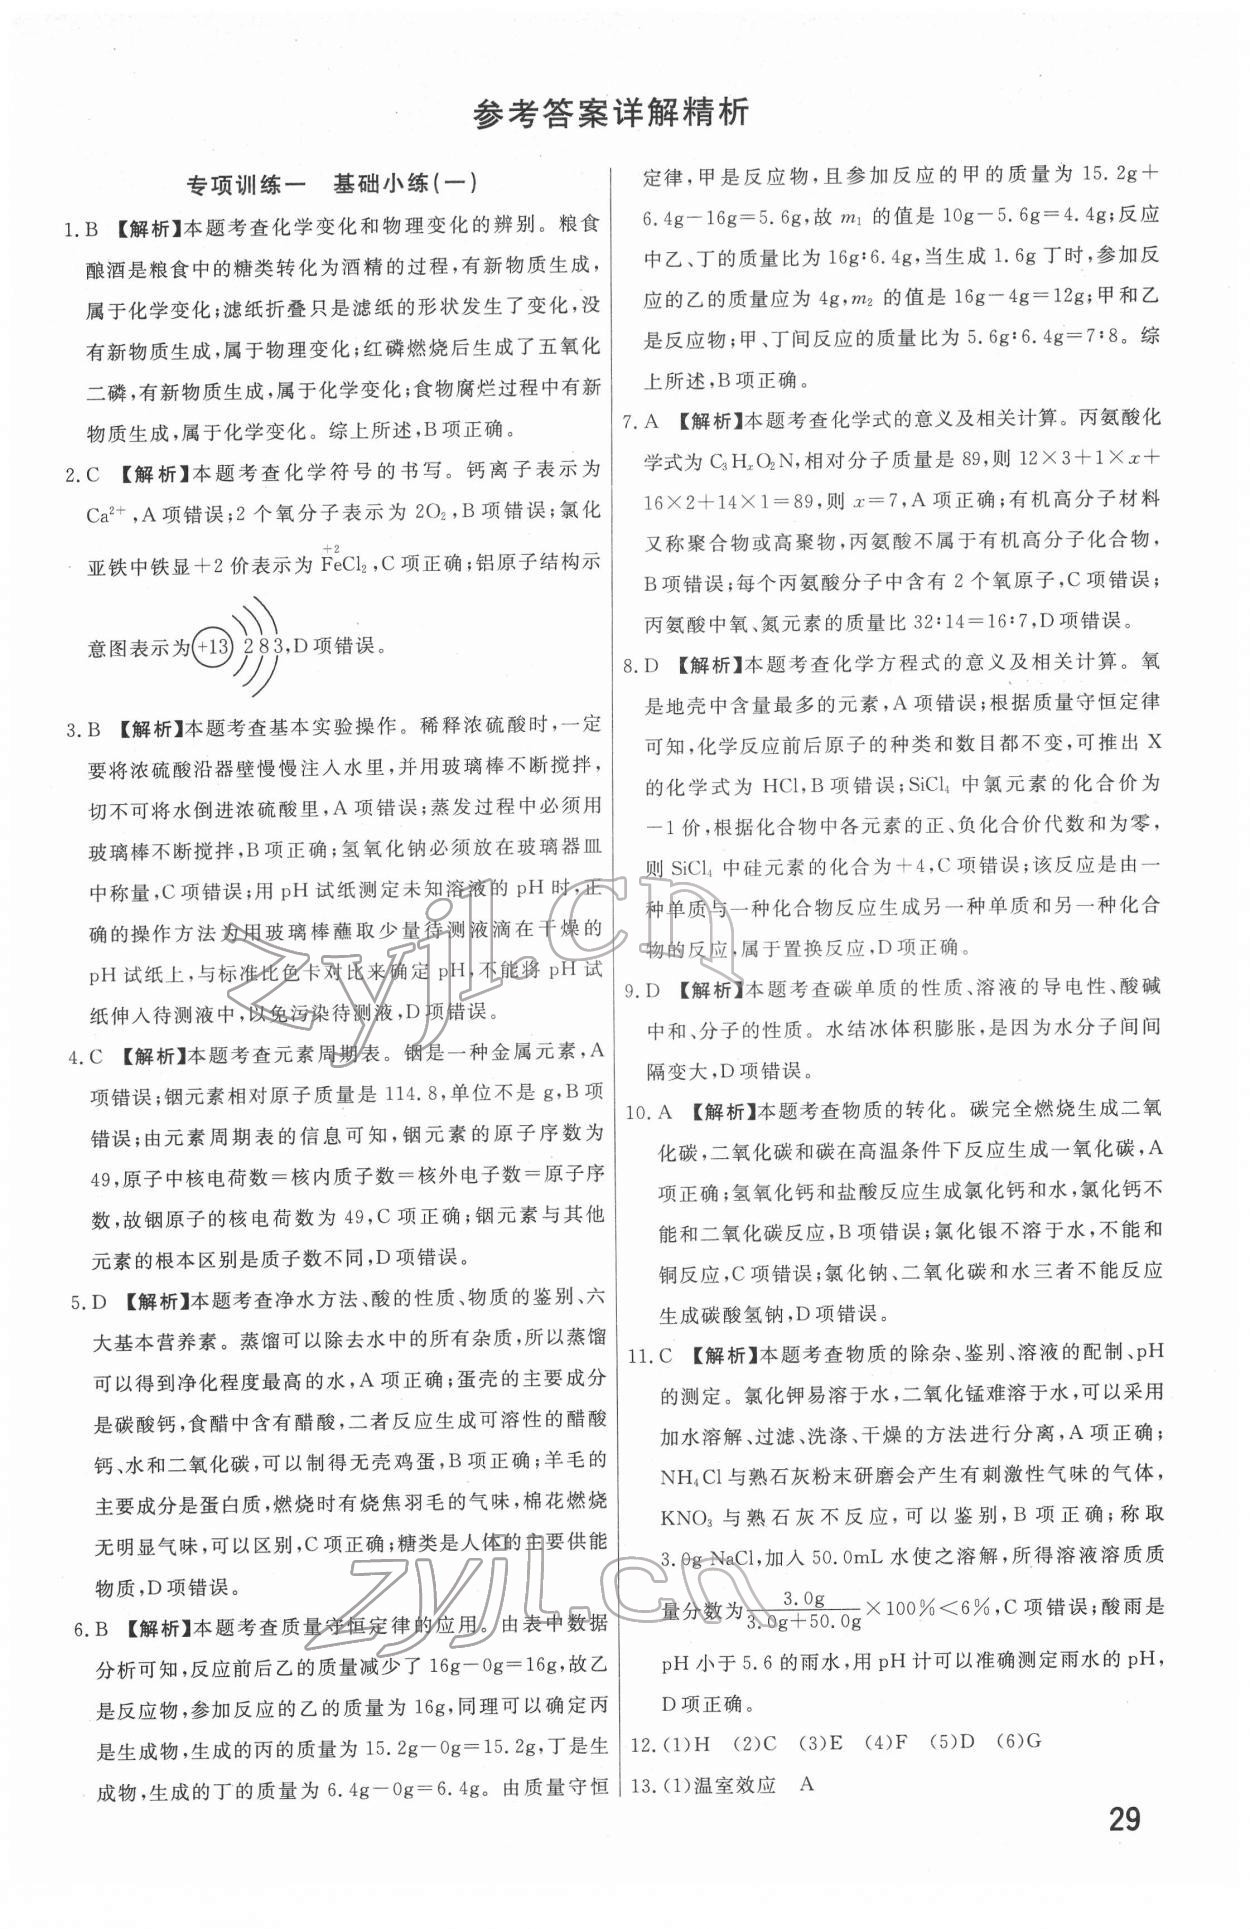 参考答案详解精析
专项训练一 基础小练(一)
1. B 【解析】本题考查化学变化和物理变化的辨别。粮食
酿酒是粮食中的糖类转化为酒精的过程,有新物质生成,
属于化学变化;滤纸折叠只是滤纸的形状发生了变化,没
有新物质生成,属于物理变化;红磷燃烧后生成了五氧化
二磷,有新物质生成,属于化学变化;食物腐烂过程中有新
物质生成,属于化学变化。综上所述,B项正确。
2. C 【解析】本题考查化学符号的书写。钙离子表示为
Ca²⁺,A项错误;2个氧分子表示为2O₂,B项错误;氯化
+2
亚铁中铁显+2价表示为FeCl₂,C项正确;铝原子结构示
意图表示为+13 2 8 3,D项错误。
3. B 【解析】本题考查基本实验操作。稀释浓硫酸时,一定
要将浓硫酸沿器壁慢慢注入水里,并用玻璃棒不断搅拌,
切不可将水倒进浓硫酸里,A项错误;蒸发过程中必须用
玻璃棒不断搅拌,B项正确;氢氧化钠必须放在玻璃器皿
中称量,C项错误;用pH试纸测定未知溶液的pH时,正
确的操作方法为用玻璃棒蘸取少量待测液滴在干燥的
pH试纸上,与标准比色卡对比来确定pH,不能将pH试
纸伸入待测液中,以免污染待测液,D项错误。
4. C 【解析】本题考查元素周期表。铟是一种金属元素,A
项错误;铟元素相对原子质量是114.8,单位不是g,B项
错误;由元素周期表的信息可知,铟元素的原子序数为
49,原子中核电荷数=核内质子数=核外电子数=原子序
数,故铟原子的核电荷数为49,C项正确;铟元素与其他
元素的根本区别是质子数不同,D项错误。
5. D 【解析】本题考查净水方法、酸的性质、物质的鉴别、六
大基本营养素。蒸馏可以除去水中的所有杂质,所以蒸馏
可以得到净化程度最高的水,A项正确;蛋壳的主要成分
是碳酸钙,食醋中含有醋酸,二者反应生成可溶性的醋酸
钙、水和二氧化碳,可以制得无壳鸡蛋,B项正确;羊毛的
主要成分是蛋白质,燃烧时有烧焦羽毛的气味,棉花燃烧
无明显气味,可以区别,C项正确;糖类是人体的主要供能
物质,D项错误。
6. B 【解析】本题考查质量守恒定律的应用。由表中数据
分析可知,反应前后乙的质量减少了16g-0g=16g,故乙
是反应物,参加反应的乙的质量为16g,同理可以确定丙
是生成物,生成的丙的质量为15.2g-0g=15.2g,丁是生
成物,生成的丁的质量为6.4g-0g=6.4g。由质量守恒
定律,甲是反应物,且参加反应的甲的质量为15.2g+
6.4g-16g=5.6g,故m₁的值是10g-5.6g=4.4g;反应
中乙、丁的质量比为16g∶6.4g,当生成1.6g丁时,参加反
应的乙的质量应为4g,m₂的值是16g-4g=12g;甲和乙
是反应物;甲、丁间反应的质量比为5.6g∶6.4g=7∶8。综
上所述,B项正确。
7. A 【解析】本题考查化学式的意义及相关计算。丙氨酸化
学式为C₃HₓO₂N,相对分子质量是89,则12×3+1×x+
16×2+14×1=89,则x=7,A项正确;有机高分子材料
又称聚合物或高聚物,丙氨酸不属于有机高分子化合物,
B项错误;每个丙氨酸分子中含有2个氧原子,C项错误;
丙氨酸中氧、氮元素的质量比32∶14=16∶7,D项错误。
8. D 【解析】本题考查化学方程式的意义及相关计算。氧
是地壳中含量最多的元素,A项错误;根据质量守恒定律
可知,化学反应前后原子的种类和数目都不变,可推出X
的化学式为HCl,B项错误;SiCl₄中氯元素的化合价为
-1价,根据化合物中各元素的正、负化合价代数和为零,
则SiCl₄中硅元素的化合为+4,C项错误;该反应是由一
种单质与一种化合物反应生成另一种单质和另一种化合
物的反应,属于置换反应,D项正确。
9. D 【解析】本题考查碳单质的性质、溶液的导电性、酸碱
中和、分子的性质。水结冰体积膨胀,是因为水分子间间
隔变大,D项错误。
10. A 【解析】本题考查物质的转化。碳完全燃烧生成二氧
化碳,二氧化碳和碳在高温条件下反应生成一氧化碳,A
项正确;氢氧化钙和盐酸反应生成氯化钙和水,氯化钙不
能和二氧化碳反应,B项错误;氯化银不溶于水,不能和
铜反应,C项错误;氯化钠、二氧化碳和水三者不能反应
生成碳酸氢钠,D项错误。
11. C 【解析】本题考查物质的除杂、鉴别、溶液的配制、pH
的测定。氯化钾易溶于水,二氧化锰难溶于水,可以采用
加水溶解、过滤、洗涤、干燥的方法进行分离,A项正确;
NH₄Cl与熟石灰粉末研磨会产生有刺激性气味的气体,
KNO₃与熟石灰不反应,可以鉴别,B项正确;称取
3.0g NaCl,加入50.0mL水使之溶解,所得溶液溶质质
量分数为3.0g/(3.0g+50.0g)×100%<6%,C项错误;酸雨是
pH小于5.6的雨水,用pH计可以准确测定雨水的pH,
D项正确。
12. (1)H (2)C (3)E (4)F (5)D (6)G
13. (1)温室效应 A
29
zyjl.cn
zyjl.cn